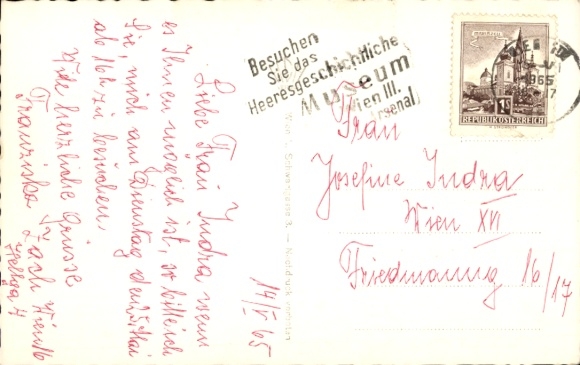 14/V 65
Liebe Frau Indra wenn
es Ihnen möglich ist, so bitte ich
Sie, mich am Dienstag den Mai
ab 16h zu besuchen.
Viele herzliche Grüsse
Franziska Zach Wien
Besuchen
Sie das
Heeresgeschichtliche
Museum
Wien III.
Arsenal)
1965
MARIAZELL
1S
REPUBLIK ÖSTERREICH
Frau
Josefine Indra
Wien XVI
Friedmanng 16/17